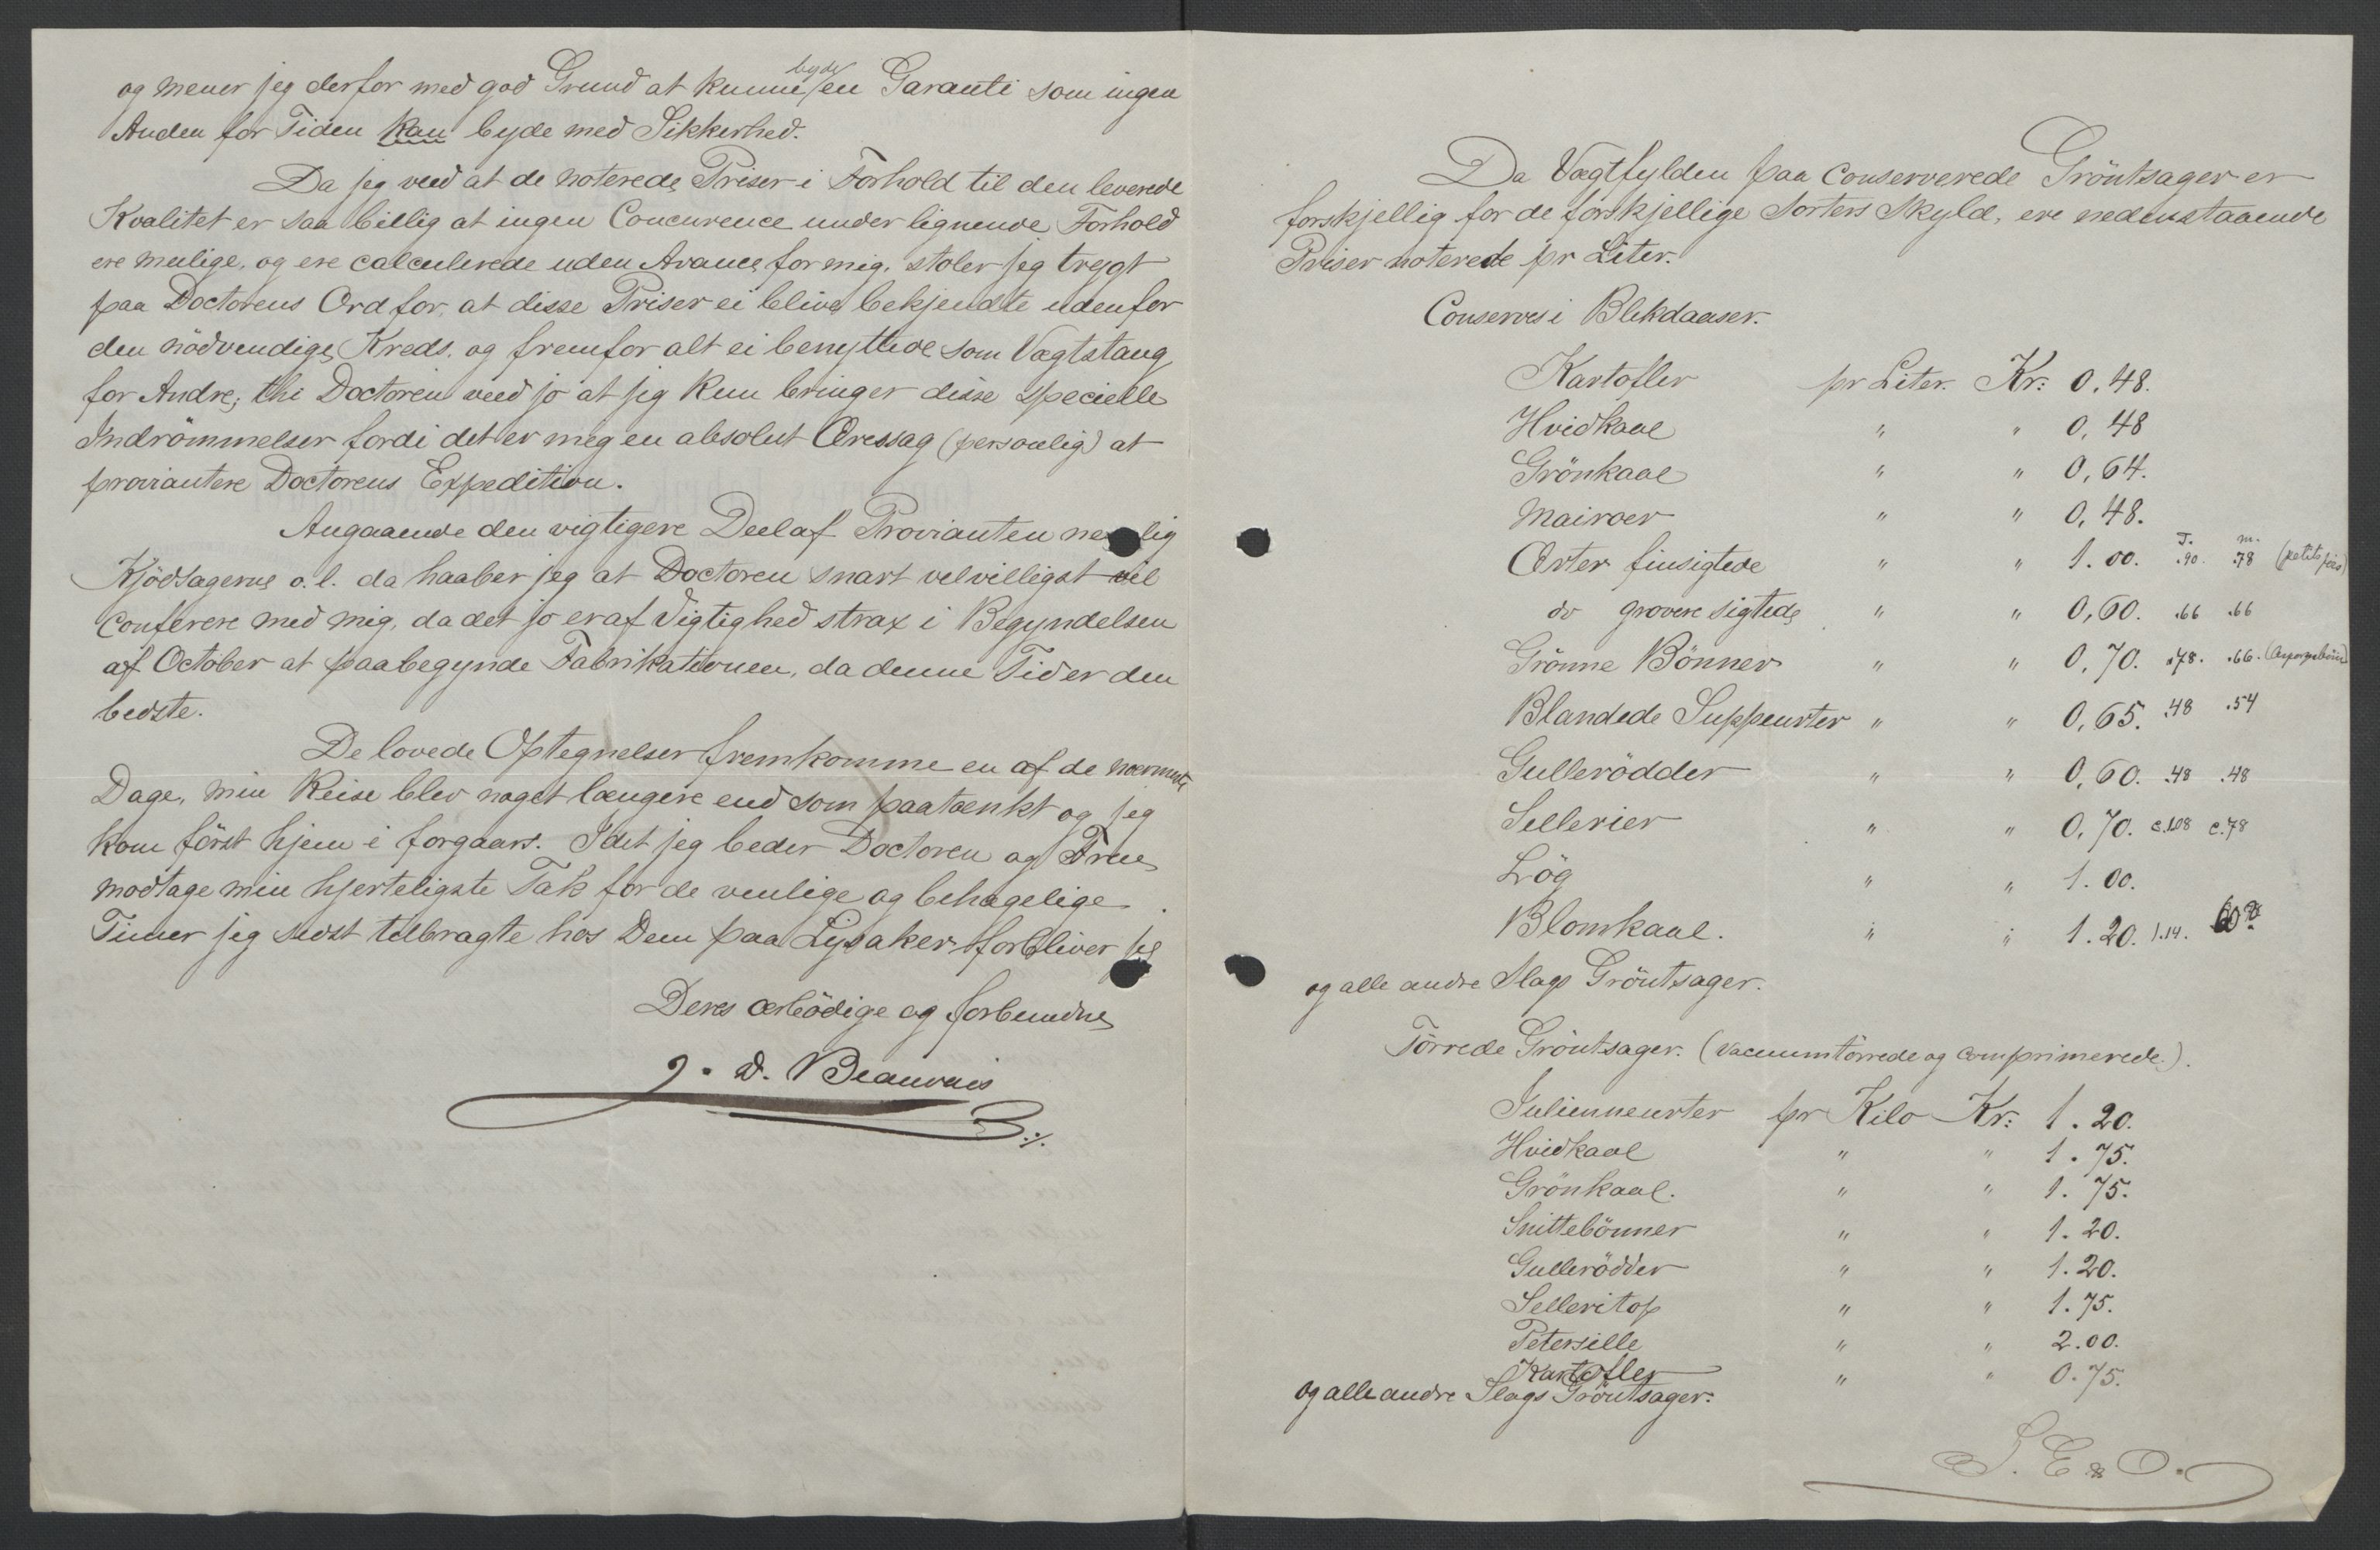 og mener jeg derfor med god Grund at kunne byde en Garanti som ingen
Anden for Tiden kan byde med Sikkerhed.
Da jeg veed at de noterede Priser i Forhold til den leverede
Kvalitet er saa billig at ingen Concurence under lignende Forhold
ere mulige, og ere calculerede uden Avance for mig, stoler jeg trygt
paa Doctorens Ord for, at disse Priser ei blive bekjendte udenfor
den nödvendige Kreds, og fremfor alt ei benyttede som Vægtstang
for Andre; thi Doctoren veed jo at jeg kun bringer disse specielle
Indrömmelser fordi det er mig en absolut Æressag (personlig) at
proviantere Doctorens Expedition.
Angaaende den vigtigere Deel af Provianten nemlig
Kjödsagerne o.l. da haaber jeg at Doctoren snart velvilligst vil
conferere med mig, da det jo er af Vigtighed strax i Begyndelsen
af October at paabegynde Fabrikationen, da denne Tid er den
bedste.
De lovede Optegnelser fremkomme en af de nærmeste
Dage, min Reise blev noget længere end som paatænkt og jeg
kom först hjem i forgaars. Idet jeg beder Doctoren og Frue
modtage min hjerteligste Tak for de venlige og behagelige
Timer jeg sidst tilbragte hos Dem paa Lysaker forbliver jeg
Deres ærbödige og forbundne
J. D. Beauvais
Da Vægtfylden paa conserverede Gröntsager er
forskjellig for de forskjellige Sorters Skyld, ere nedenstaaende
Priser noterede pr Liter.
Conserves i Blikdaaser.
Kartofler pr Liter. Kr: 0,48.
Hvidkaal " " 0,48
Grönkaal " " 0,64.
Mairoer " " 0,48.
T. m.
Ærter finsigtede " " 1.00. .90. .78 (petits pois)
do grovere sigtede " " 0,60. .66 .66
Grönne Bönner " " 0,70. .78. .66.
Blandede Suppeurter " " 0,65. .48 .54
Gullerödder " " 0,60. .48 .48
Sellerier " " 0,70. c.108 c.78
Lög " " 1.00.
Blomkaal. " " 1.20. 1.14.
og alle andre Slags Gröntsager.
Törrede Gröntsager. (vacuumtörrede og comprimerede.).
Julienneurter pr Kilo Kr: 1.20.
Hvidkaal " " 1.75.
Grönkaal. " " 1.75.
Snittebönner " " 1.20.
Gullerödder " " 1.20.
Selleritop " " 1.75.
Petersille " " 2.00.
Kartofler " " 0.75.
og alle andre Slags Gröntsager.
S. E & O.